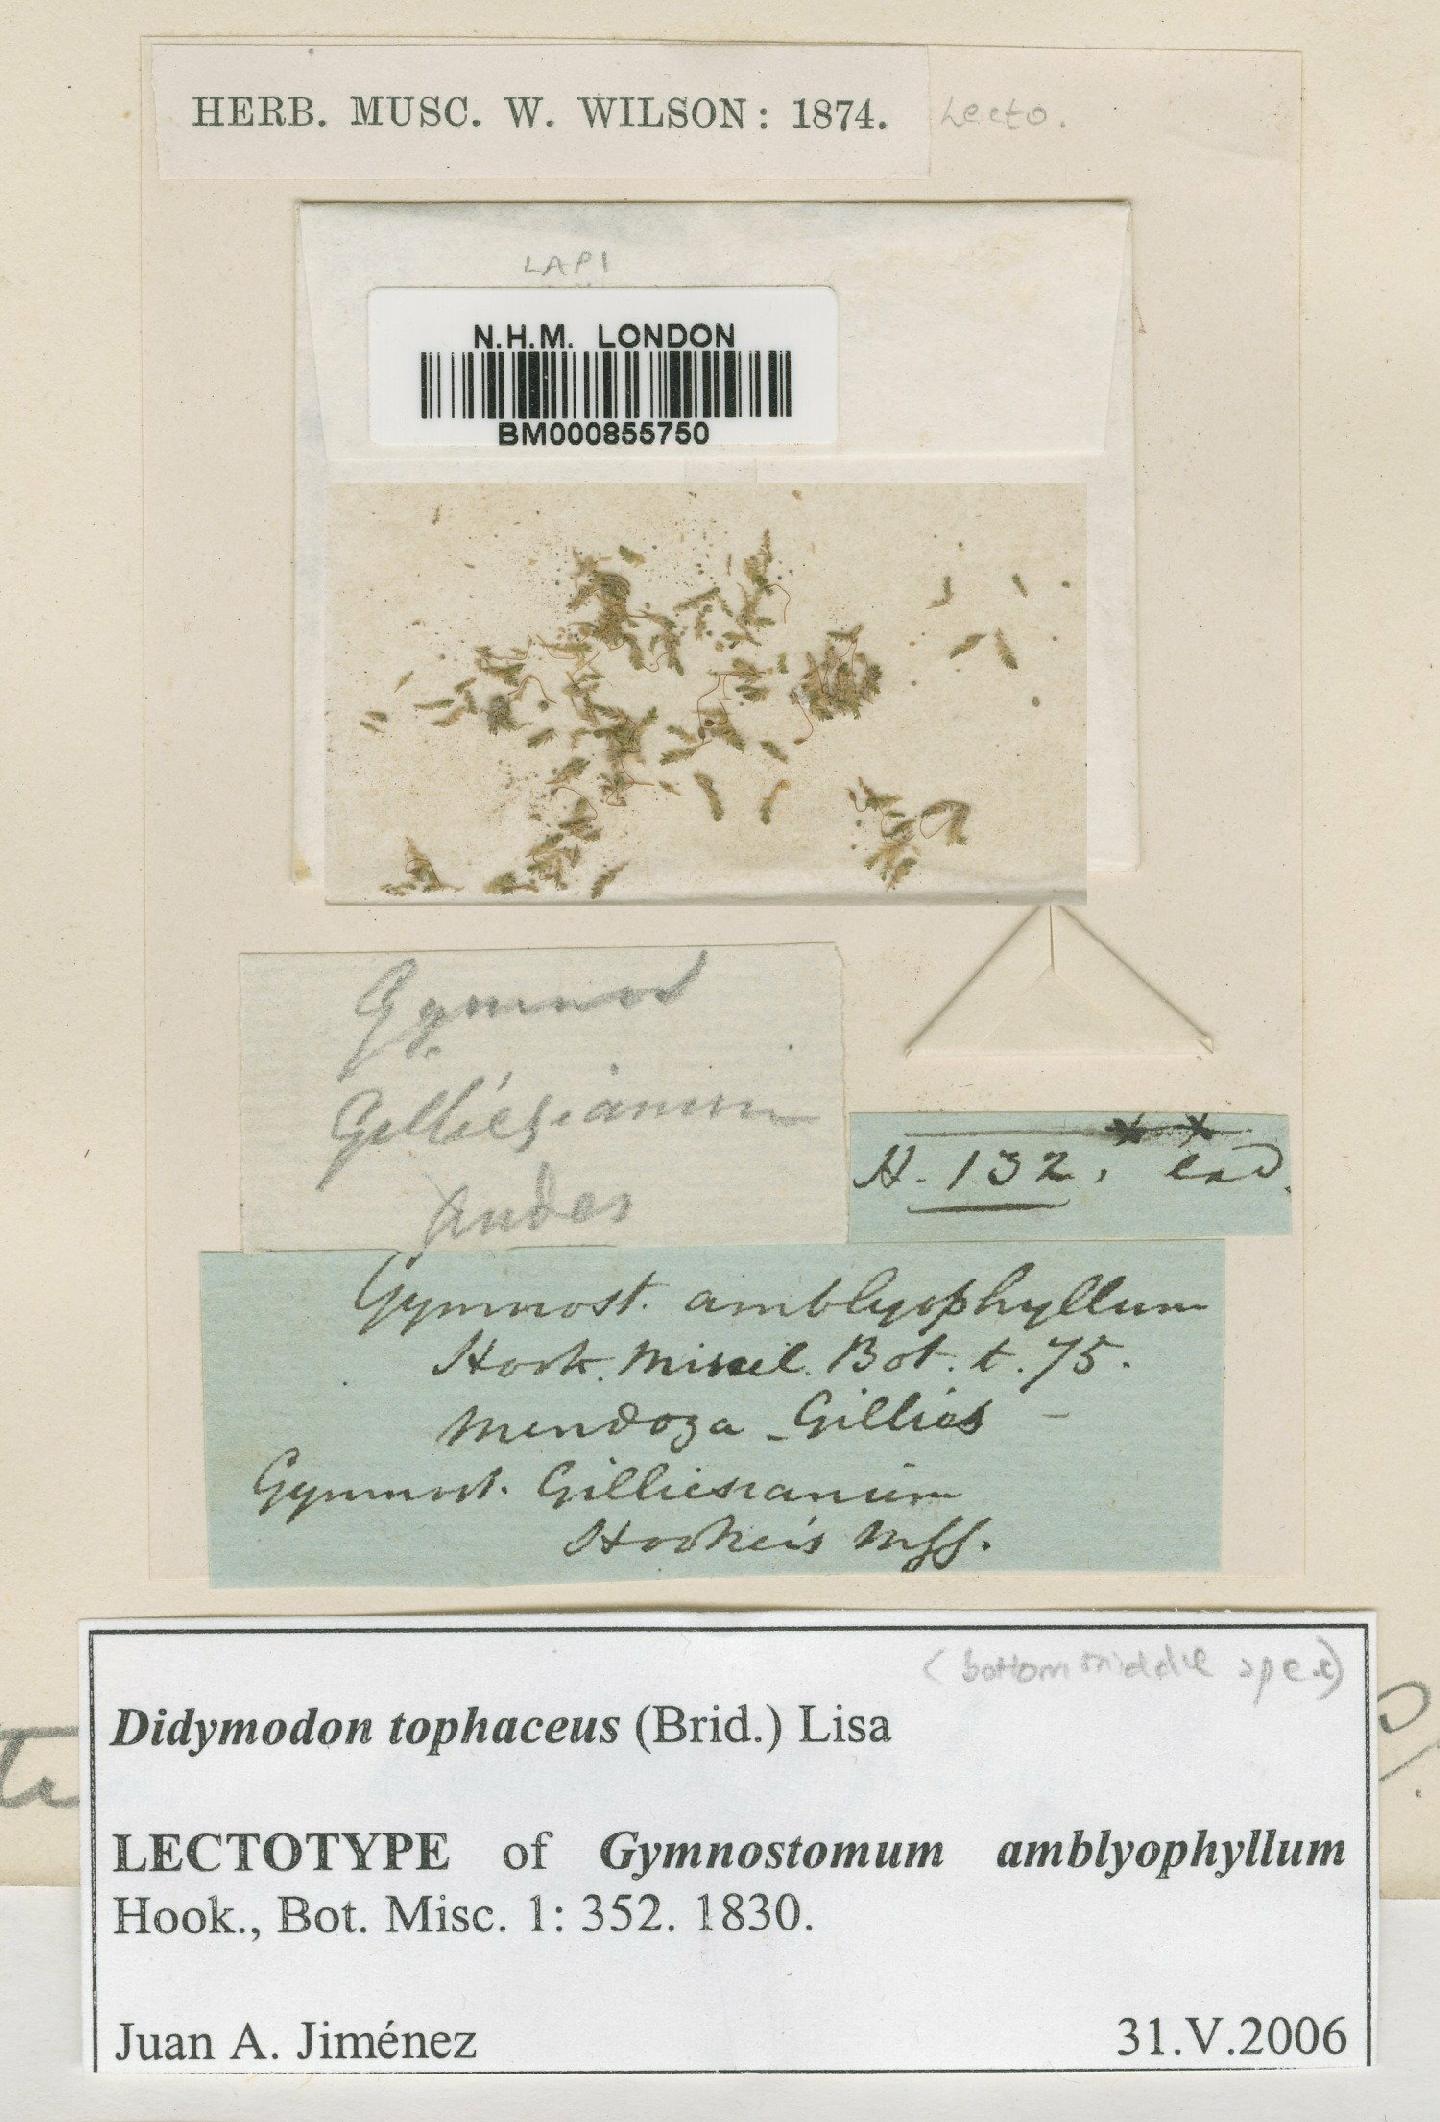 HERB. MUSC. W. WILSON: 1874.
Lecto.
LAPI
N.H.M. LONDON
BM000855750
Gymnost
Gilliesianum
Andes
H. 132,
Gymnost. amblyophyllum
Hook. Miscel. Bot. t. 75.
Mendoza _ Gillies –
Gymnost. Gilliesianum
Hookeis Mss.
(bottom middle spec)
Didymodon tophaceus (Brid.) Lisa
LECTOTYPE of Gymnostomum amblyophyllum
Hook., Bot. Misc. 1: 352. 1830.
Juan A. Jiménez 31.V.2006